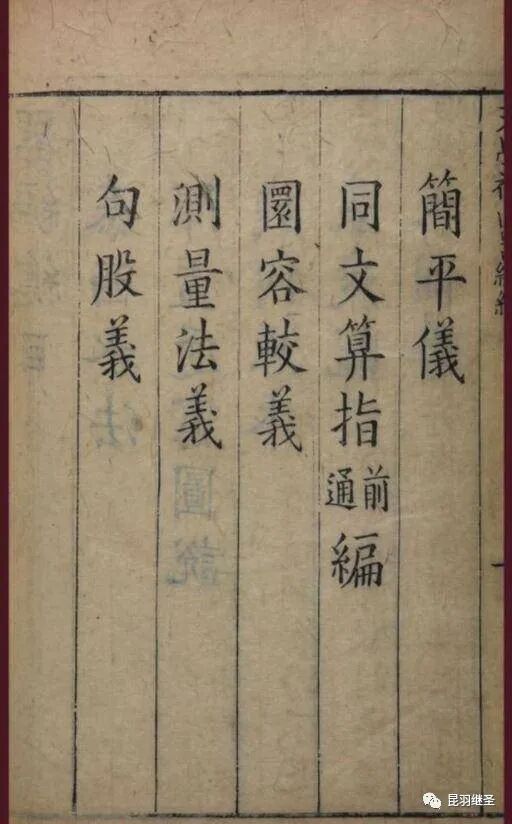 簡平儀
同文算指前通編
圜容較義
測量法義
句股義
昆羽继圣